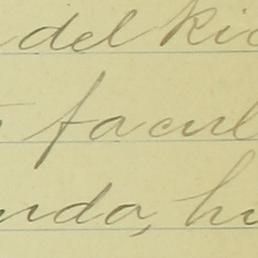 del Rio
facul
nda, hu